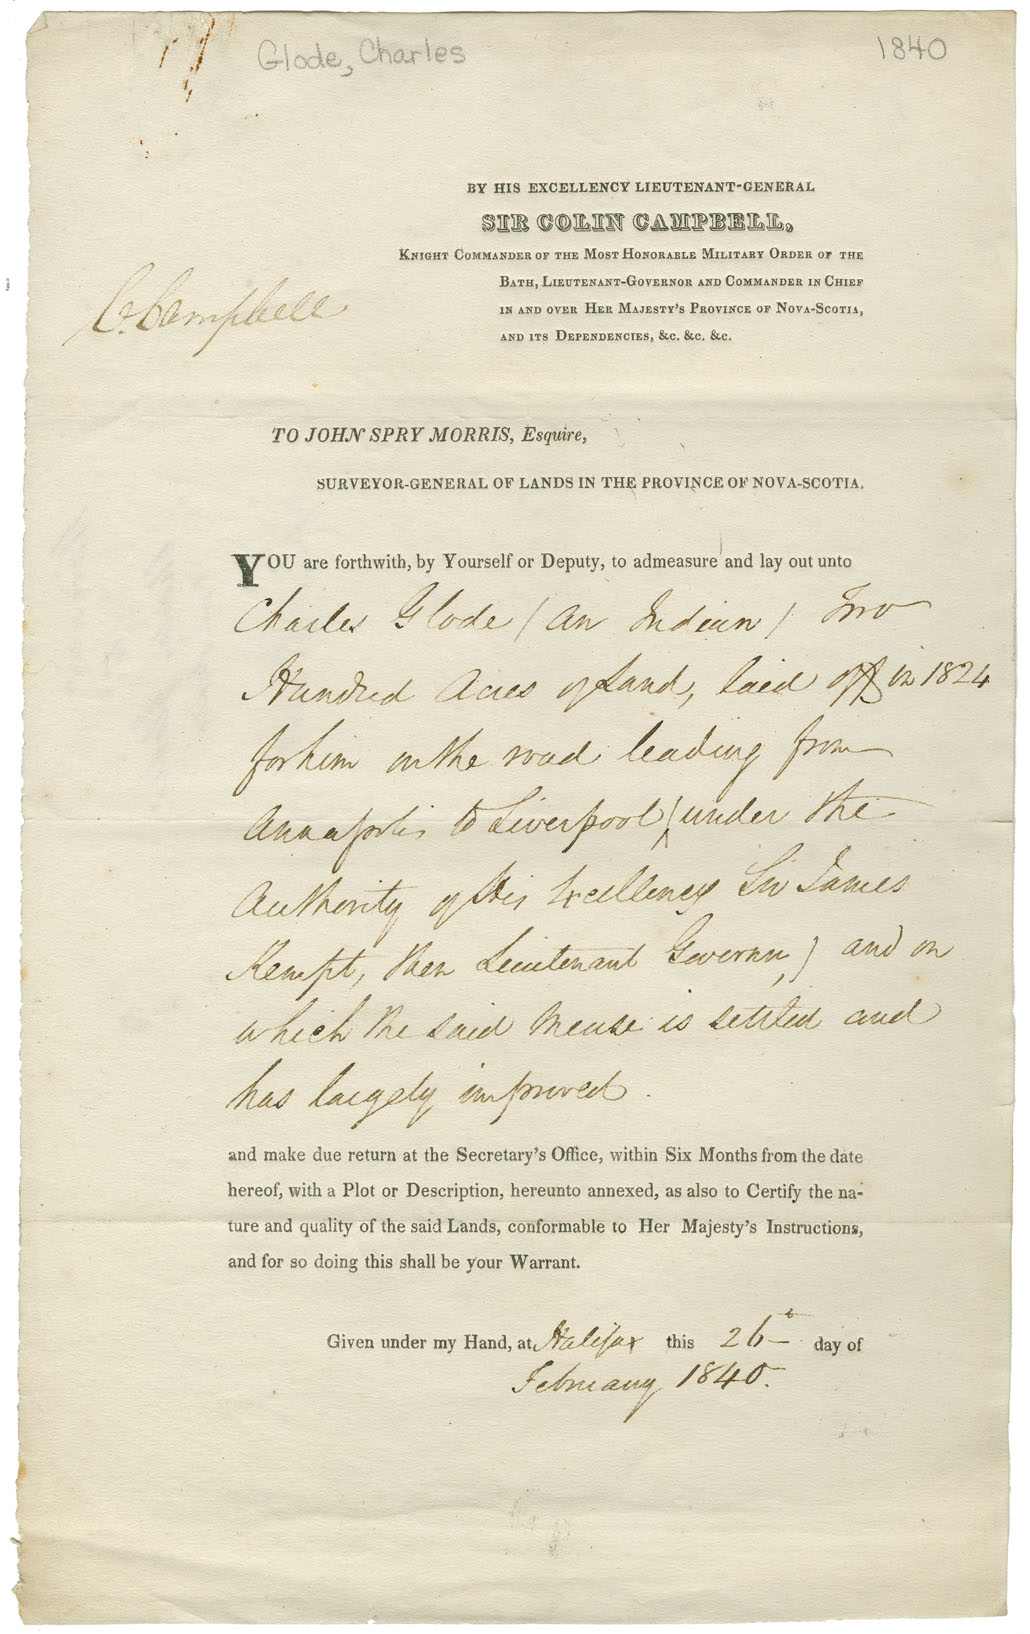 Glode, Charles 1840
BY HIS EXCELLENCY LIEUTENANT-GENERAL
SIR COLIN CAMPBELL,
KNIGHT COMMANDER OF THE MOST HONORABLE MILITARY ORDER OF THE
BATH, LIEUTENANT-GOVERNOR AND COMMANDER IN CHIEF
IN AND OVER HER MAJESTY'S PROVINCE OF NOVA-SCOTIA,
AND ITS DEPENDENCIES, &c. &c. &c.
C. Campbell
TO JOHN SPRY MORRIS, Esquire,
SURVEYOR-GENERAL OF LANDS IN THE PROVINCE OF NOVA-SCOTIA.
YOU are forthwith, by Yourself or Deputy, to admeasure and lay out unto
Charles Glode (an Indian) Two
Hundred Acres of Land, laid off in 1824
for him on the road leading from
Annapolis to Liverpool (under the
Authority of His Excellency Sir James
Kempt, then Lieutenant Governor,) and on
which the said Meuse is settled and
has largely improved.
and make due return at the Secretary's Office, within Six Months from the date
hereof, with a Plot or Description, hereunto annexed, as also to Certify the na-
ture and quality of the said Lands, conformable to Her Majesty's Instructions,
and for so doing this shall be your Warrant.
Given under my Hand, at Halifax this 26th day of
February 1840.